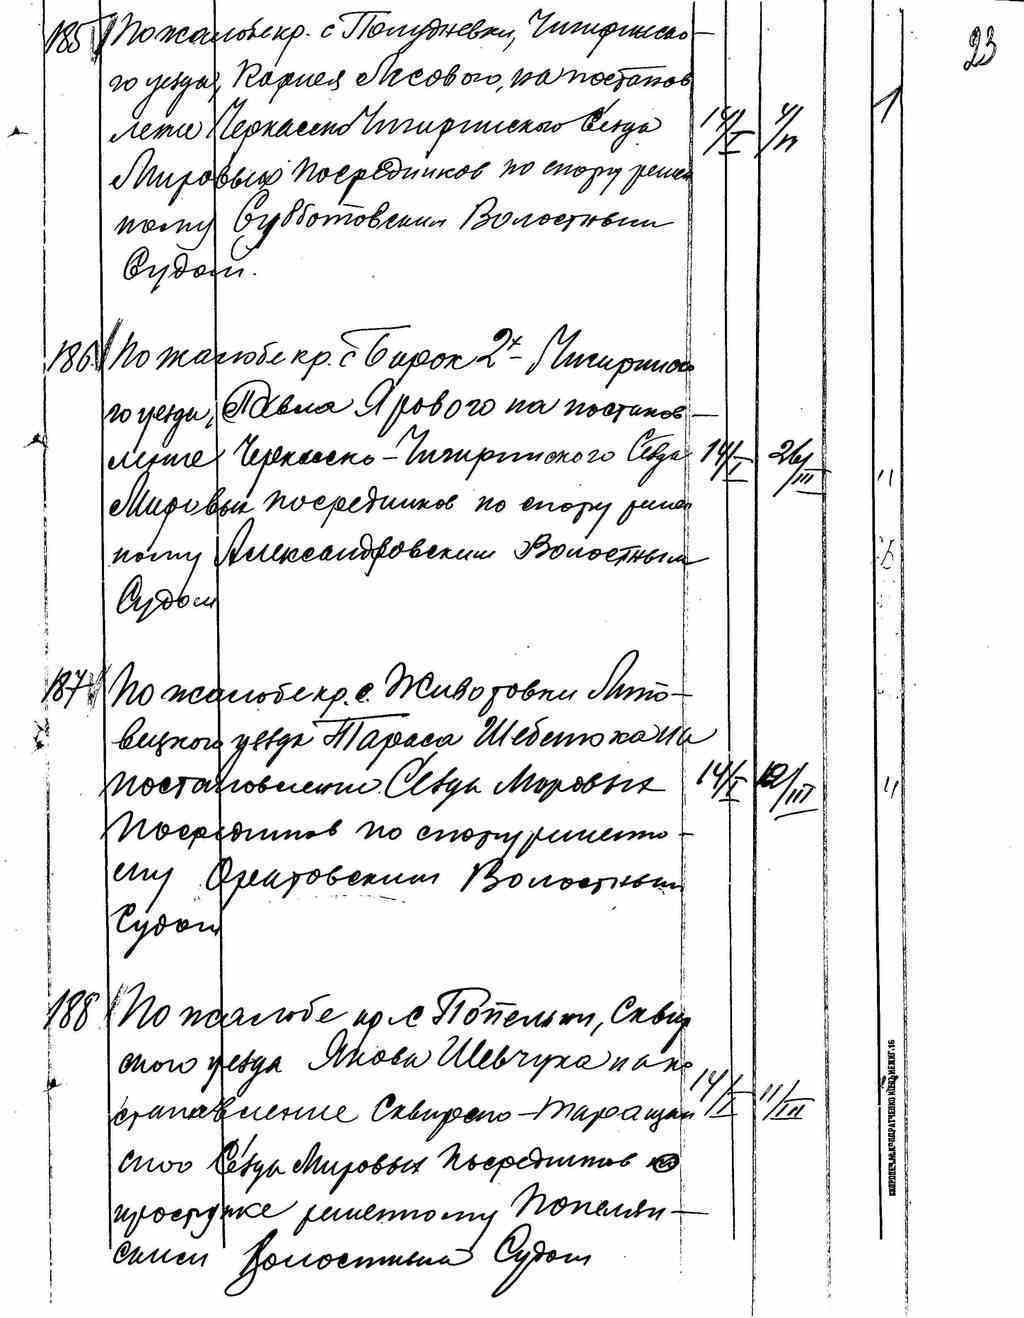 23
185 По жалобе кр. с Полудневки, Чигиринско-
го уезда, Карпея Лисового, на постанов
ление Черкасско Чигиринского Съезда 14/I 4/III 1
Мировых Посредников по спору решен
ному Субботовским Волостным
Судом.
186. По жалобе кр. с Бирок 2х- Чигиринско
го уезда, Павла Ярового на постанов-
ление Черкасско-Чигиринского Съезда 14/I 26/III "
Мировых посредников по спору решен
ному Александровским Волостным
Судом
187 По жалобе кр. с. Животовки Липо-
вецкого уезда Тараса Шебетюка на
постановление Съезда Мировых 14/I 12/III "
Посредников по спору решенно-
му Оратовским Волостным
Судом
188 По жалобе кр. с Попельни, Сквир
ского уезда Якова Шевчука на по
становление Сквирско-Таращан 14/I 11/III
ского Съезда Мировых Посредников по
проступке решенному Попелян-
ским Волостным Судом